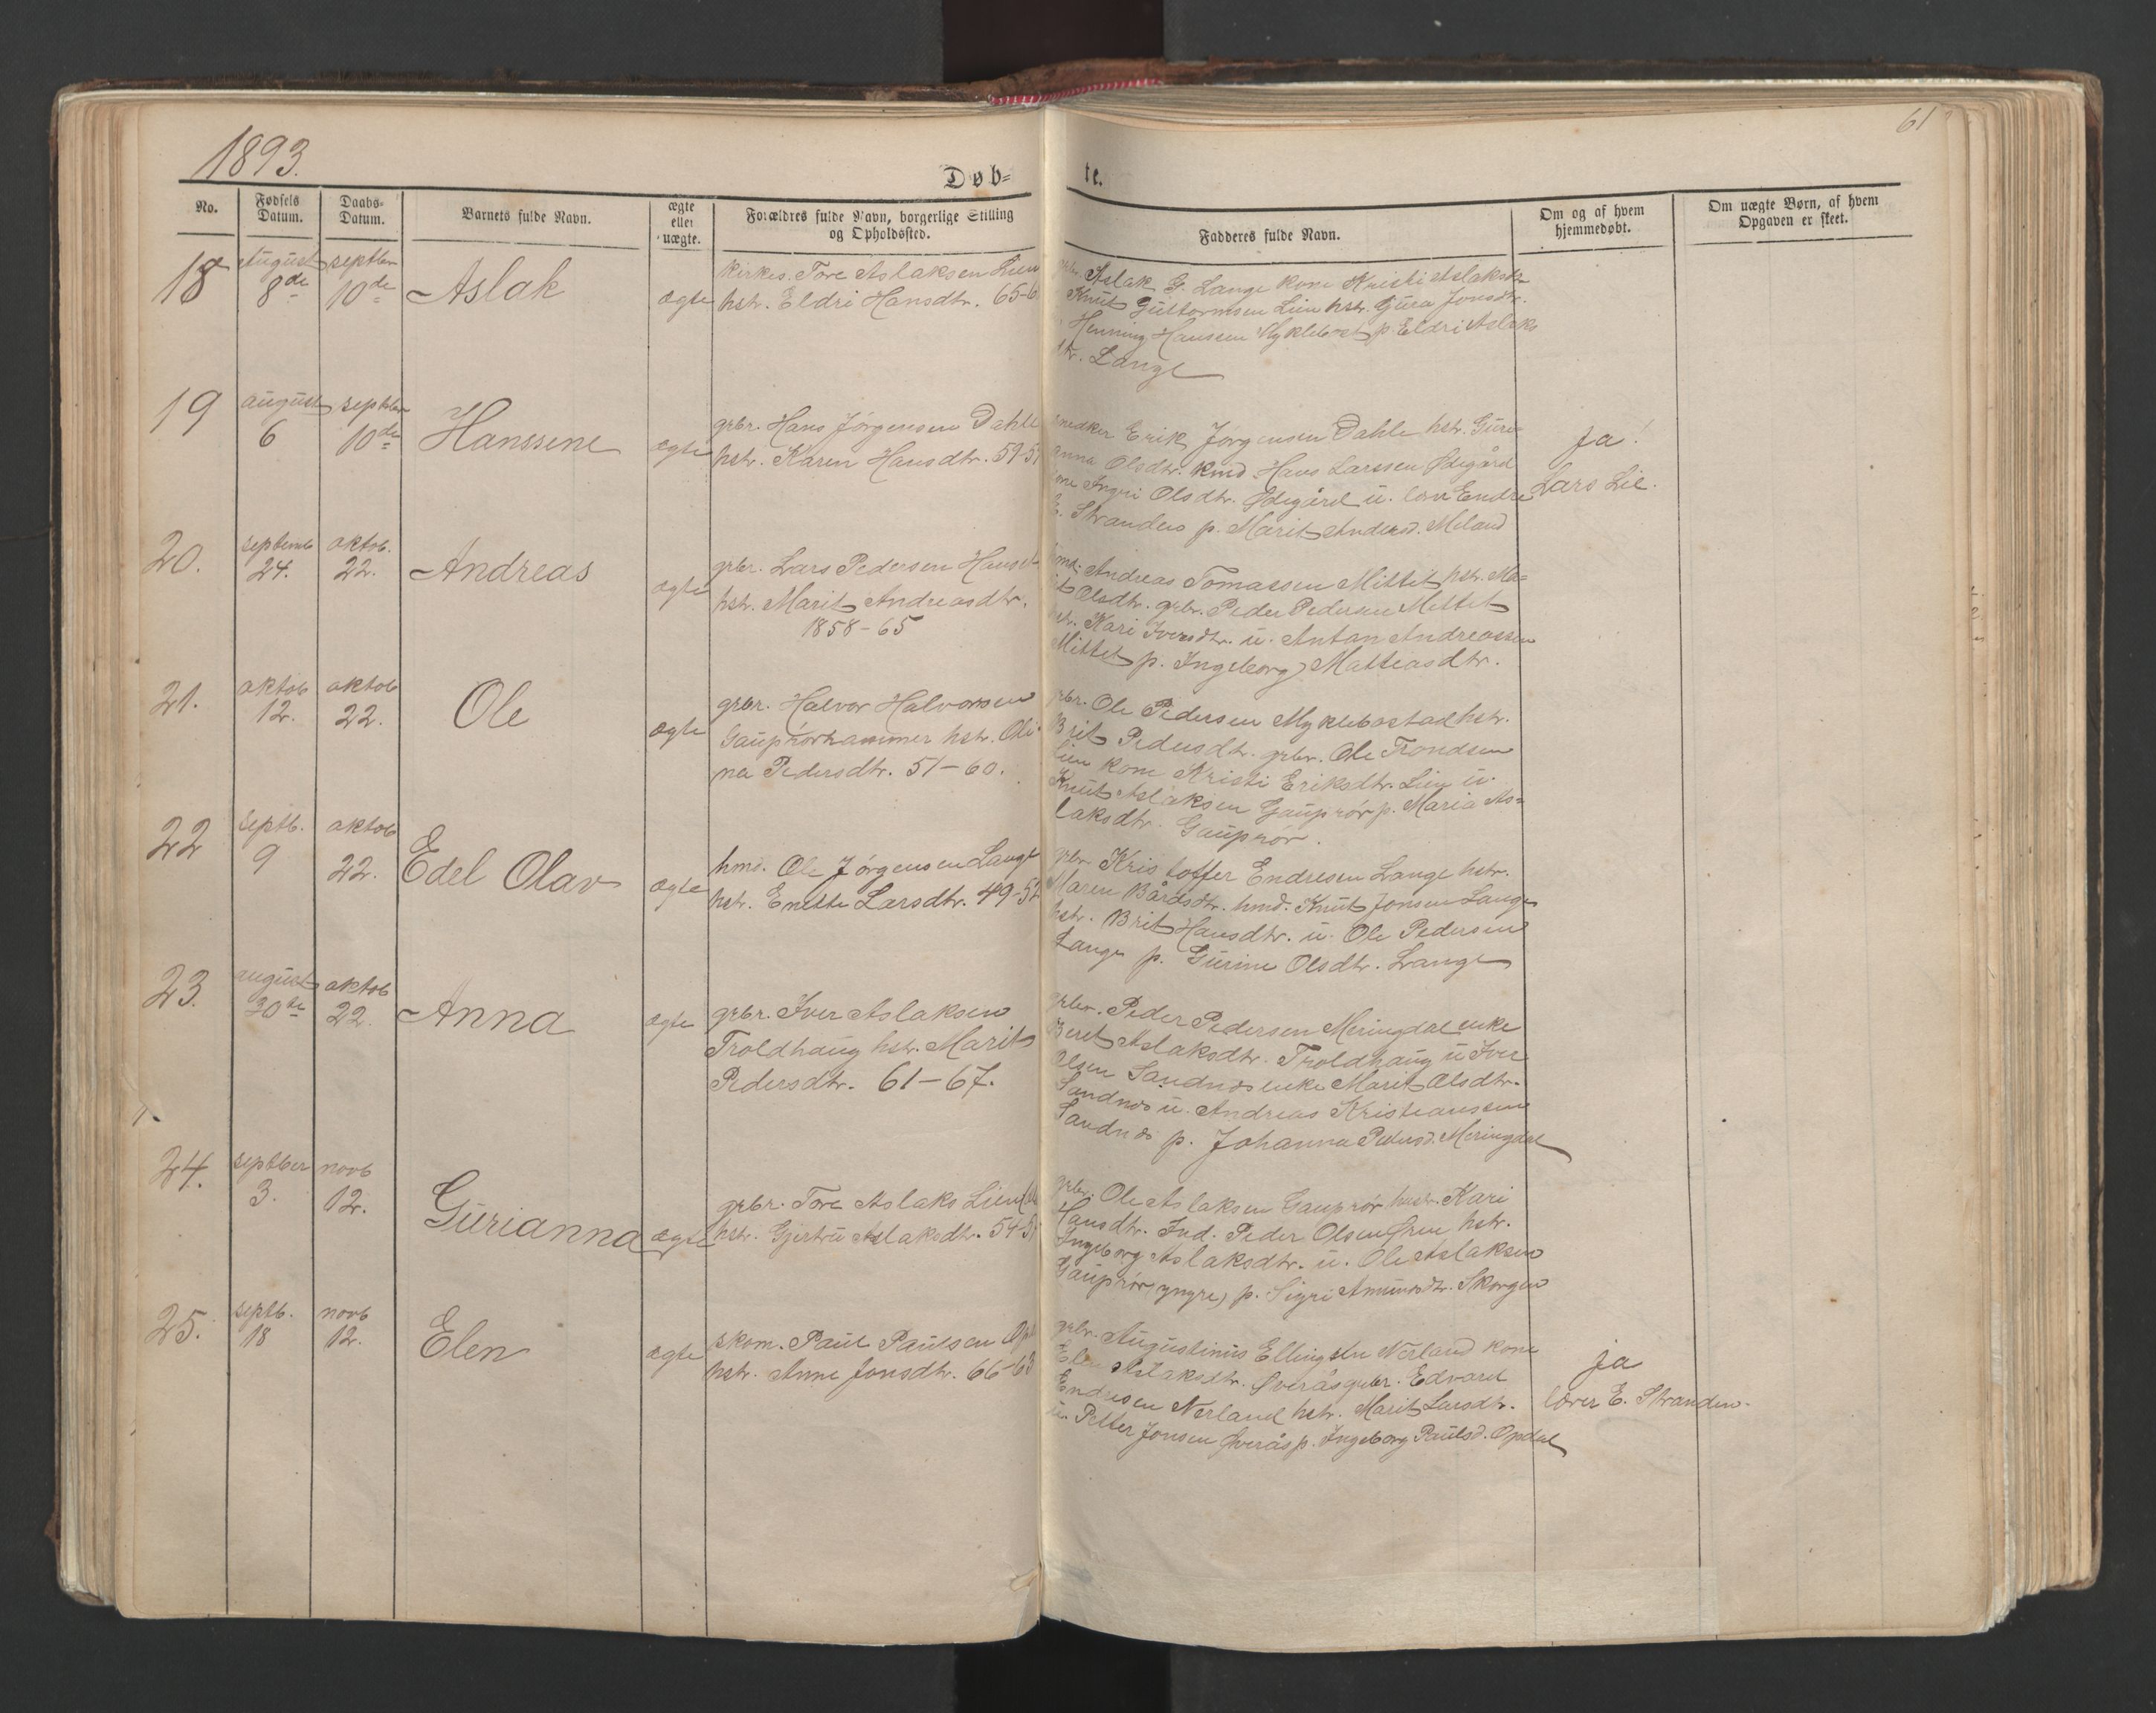 1893.
61
Døb-
te.
No.
Fødsels Datum.
Daabs-Datum.
Barnets fulde Navn.
ægte eller uægte.
Forældres fulde Navn, borgerlige Stilling og Opholdssted.
Fadderes fulde Navn.
Om og af hvem hjemmedøbt.
Om uægte Børn, af hvem Opgaven er skeet.
18
august 8de
septbr 10de
Aslak
ægte
kirkes. Tore Aslaksen Lien
hstr. Eldri Hansdtr. 65-6
grbr. Aslak G. Lange kone Kristi Aslaksdtr
Knut Guttormsen Lien hstr. Gjura Jonsdtr.
Henning Hansen Myklebost p. Eldri Aslaks
dtr. Lange
19
august 6
septbr 10de
Hanssene
ægte
grbr. Hans Jørgensen Dahle
hstr. Karen Hansdtr. 59-5
snedker Erik Jørgensen Dahle hstr. Guri-
anna Olsdtr. kmd. Hans Larssen Ødegård
kone Ingri Olsdtr. Ødegård u. lærer Endre
E. Stranden p. Marit Andersd. Meland
Ja!
Lars Lie.
20.
septemb 24.
oktob. 22.
Andreas
ægte
grbr. Lars Pedersen
hstr. Marit Andreasdtr.
1858-65
Andreas Tomassen Mittet hstr. Ma-
rit Olsdtr. grbr. Peder Pedersen Mittet
hstr. Kari Iversdtr. u. Antan Andreassen
Mittet p. Ingeborg Mattiasdtr.
21.
oktob 12.
oktob 22.
Ole
ægte
grbr. Halvor Halvorsen
Gauprørhammer hstr. Oli-
na Pedersdtr. 51-60.
grbr. Ole Pedersen Myklebostad hstr.
Brit Pedersdtr. grbr. Ole Trondsen
Lien kone Kristi Eriksdtr. Lien u.
Knut Aslaksen Gauprør p. Maria As-
laksdtr. Gauprør.
22
septb. 9
oktob 22.
Edel Olav
ægte
hmd. Ole Jørgensen Lange
hstr. Enette Larsdtr. 49-52
grbr. Kristoffer Endresen Lange hstr.
Maren Bårdsdtr. hmd. Knut Jonsen Lange
hstr. Brit Hansdtr. u. Ole Pedersen
Lange p. Gurine Olsdtr. Lange
23.
august 30te
oktob 22.
Anna
ægte
grbr. Iver Aslaksen
Troldhaug hstr. Marit
Pedersdtr. 61-67.
grbr. Peder Pedersen Meringdal enke
Beret Aslaksdtr. Troldhaug u Iver
Olsen Sandnæs enke Marit Olsdtr.
Sandnæs u. Andreas Kristianssen
Sandnæs p. Johanna Pedersd. Meringdal
24.
septber 3.
novb 12.
Gurianna
ægte
grbr. Tore Aslaks Lien
hstr. Gjertru Aslaksdtr. 54-5
grbr. Ole Aslaksen Gauprør hustr. Kari
Hansdtr. Ind. Peder Olsen Øren hstr.
Ingeborg Aslaksdtr. u. Ole Aslaksen
Gauprør (yngre) p. Sigri Amundsdtr. Skorgen
25.
septb. 18
novb 12.
Elen
ægte
skom. Paul Paulsen
hstr. Anne Jonsdtr. 66-63
grbr. Augustinus Ellingsen Nerland kone
Elen Aslaksdtr. Øverås grbr. Edvard
Endresen Nerland hstr. Marit Larsdtr.
u. Petter Jonsen Øverås p. Ingeborg Paulsd. Opdal
ja
lærer E. Stranden.